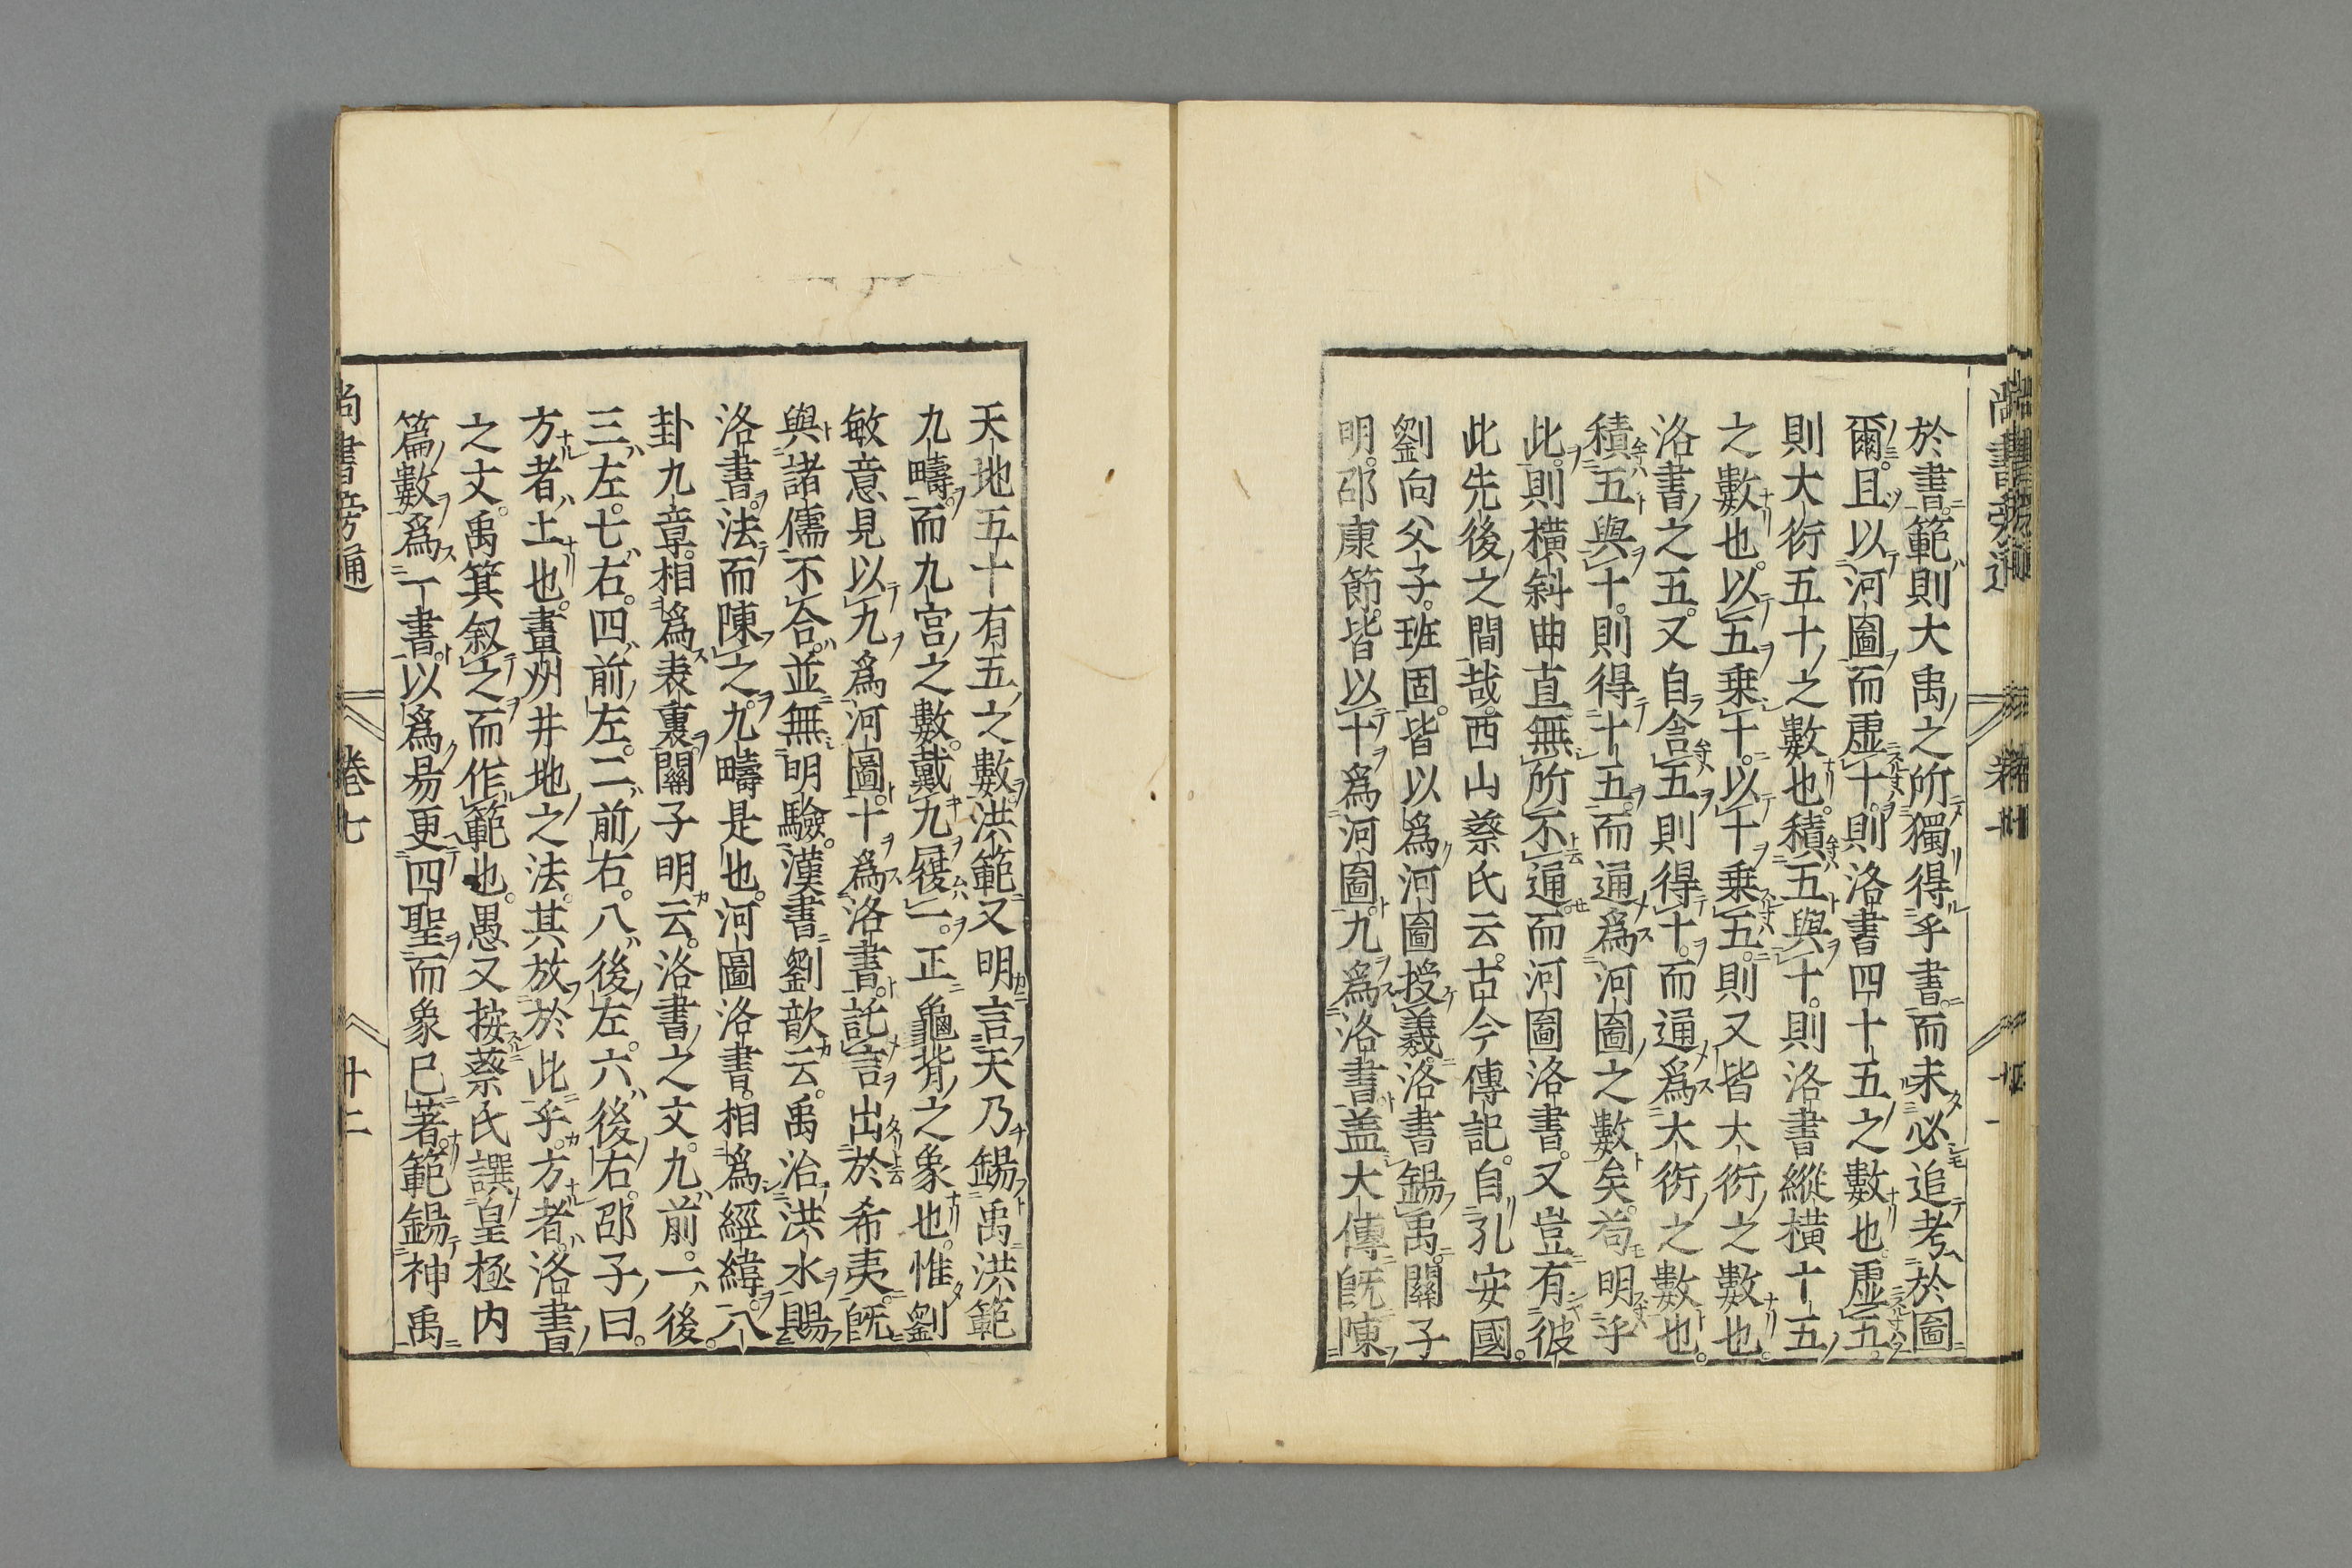 於書範則大禹之所獨得乎書而未必追考於圖
爾且以河圖而虛十則洛書四十五之數也虛五
則大衍五十之數也積五與十則洛書縱橫十五
之數也以五乘十以十乘五則又皆大衍之數也
洛書之五又自含五則得十而通爲大衍之數也
積五與十則得十五而通爲河圖之數矣苟明乎
此則橫斜曲直無所不通而河圖洛書又豈有彼
此先後之間哉西山蔡氏云古今傳記自孔安國
劉向父子班固皆以爲河圖授羲洛書錫禹關子
明邵康節皆以十爲河圖九爲洛書盖大傳旣陳
天地五十有五之數洪範又明言天乃錫禹洪範
九疇而九宮之數戴九履一正龜背之象也惟劉
敏意見以九爲河圖十爲洛書託言出於希夷旣
與諸儒不合並無明驗漢書劉歆云禹治洪水賜
洛書法而陳之九疇是也河圖洛書相爲經緯八
卦九章相爲表裏關子明云洛書之文九前一後
三左七右四前左二前右八後左六後右邵子曰
方者土也畫州井地之法其放於此乎方者洛書
之文禹箕叙之而作範也愚又按蔡氏譔皇極內
篇數爲一書以爲易更四聖而象已著範錫神禹
尚書旁通 卷七 十二